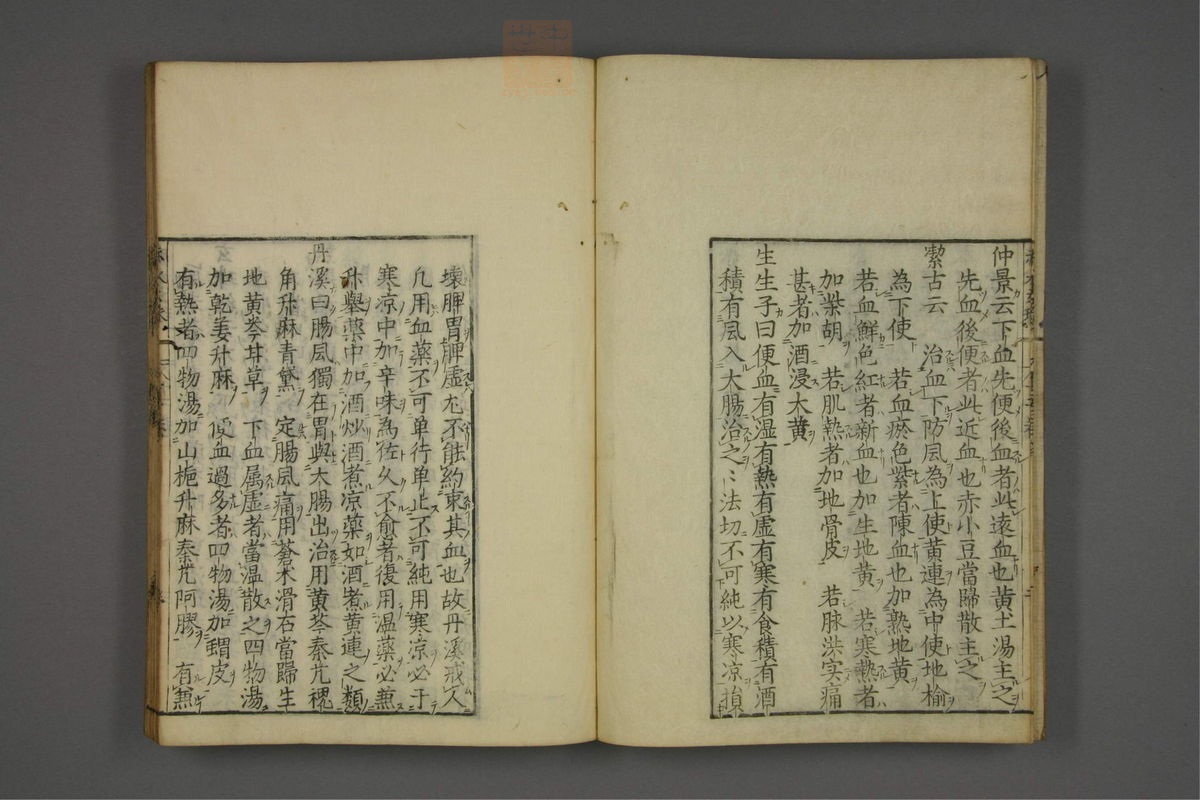 仲景云下血先便後血者此遠血也黄土湯主之
先血後便者此近血也赤小豆當歸散主之
潔古云　治血下防風為上使黄連為中使地榆
為下使　若血瘀色紫者陳血也加熟地黄
若血鮮色紅者新血也加生地黄　若寒熱者
加柴胡　若肌熱者加地骨皮　若脉洪实痛
甚者加酒浸大黄
生生子曰便血有湿有熱有虚有寒有食積有酒
積有风入大腸治之〻法切不可純以寒凉損
壊脾胃脾虚尤不能約束其血也故丹溪戒人
凢用血藥不可单行单止不可純用寒凉必于
寒凉中加辛味為佐久不愈者復用温藥必兼
升舉藥中加酒炒酒煮凉藥如酒煮黄連之類
丹溪曰腸风獨在胃與大腸出治用黄芩秦艽槐
角升麻青黛　定腸风痛用蒼术滑石當歸生
地黄芩甘草　下血属虚者當温散之四物湯
加乾姜升麻　便血過多者四物湯加猬皮
有熱者四物湯加山栀升麻秦艽阿膠　有兼